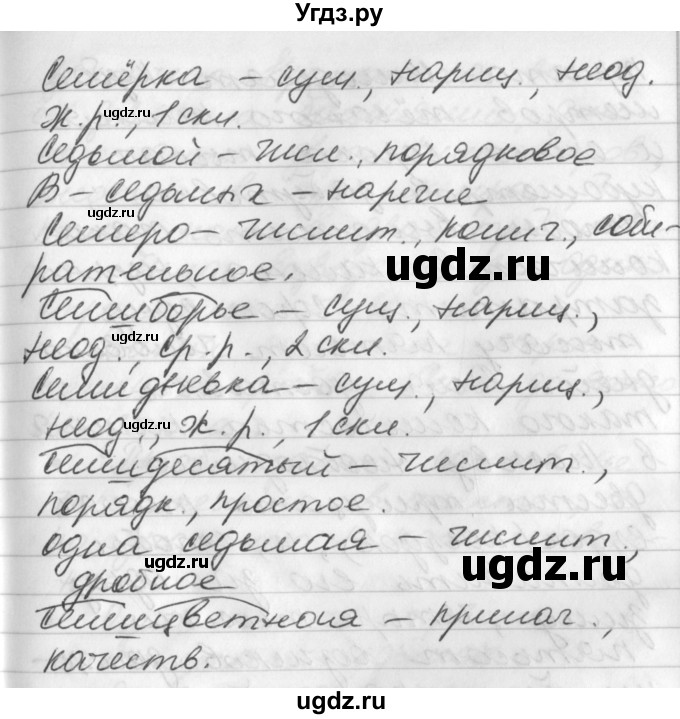 Угдз.ру
Семёрка – сущ., нариц., неод.
ж.р., 1 скл.
Седьмой – числ., порядковое
В-седьмых – наречие
Семеро – числит., колич., соби-
рательное.
Семиборье – сущ., нариц.,
неод., ср.р., 2 скл.
Семидневка – сущ., нариц.,
неод., ж.р., 1 скл.
Семидесятый – числит.,
порядк., простое.
одна седьмая – числит,
дробное
Семицветная – прилаг.,
качеств.
ugdz.ru
ugdz.ru
ugdz.ru
ugdz.ru
ugdz.ru
ugdz.ru
ugdz.ru
ugdz.ru